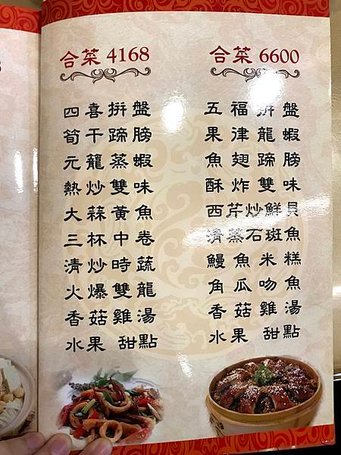 合菜 4168
四喜拼盤
筍干蹄膀
元籠蒸蝦
熱炒雙味
大蒜黃魚
三杯中卷
清炒時蔬
火爆雙龍
香菇雞湯
水果 甜點
合菜 6600
五福拼盤
果津龍蝦
魚翅蹄膀
酥炸雙味
西芹炒鮮貝
清蒸石斑魚
鰻魚米糕
角瓜吻魚
香菇雞湯
水果 甜點